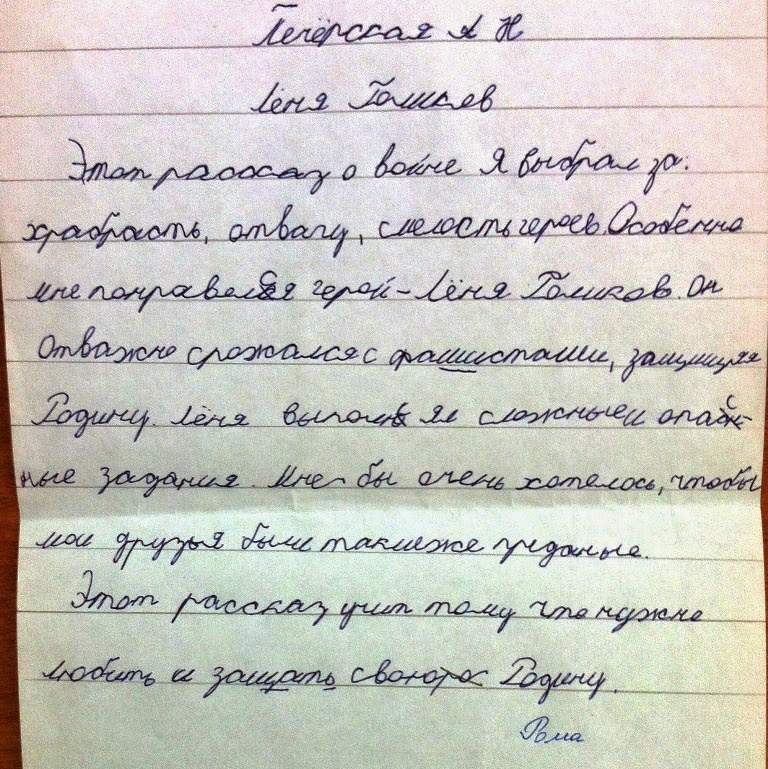 Печёрская А Н
Лёня Голиков
Этот рассказ о войне Я выбрал за:
храбрасть, отвагу, смелость героев. Особенно
мне понравелся герой - Лёня Голиков. Он
Отважно срожался с фашисташи, защищяя
Родину. Лёня выполнял сложные и опас-
ные задания. Мне бы очень хотелось, чтобы
мои друзья были такиеже преданые.
Этот рассказ учит тому что нужно
любить и защщать свою Родину.
Рома